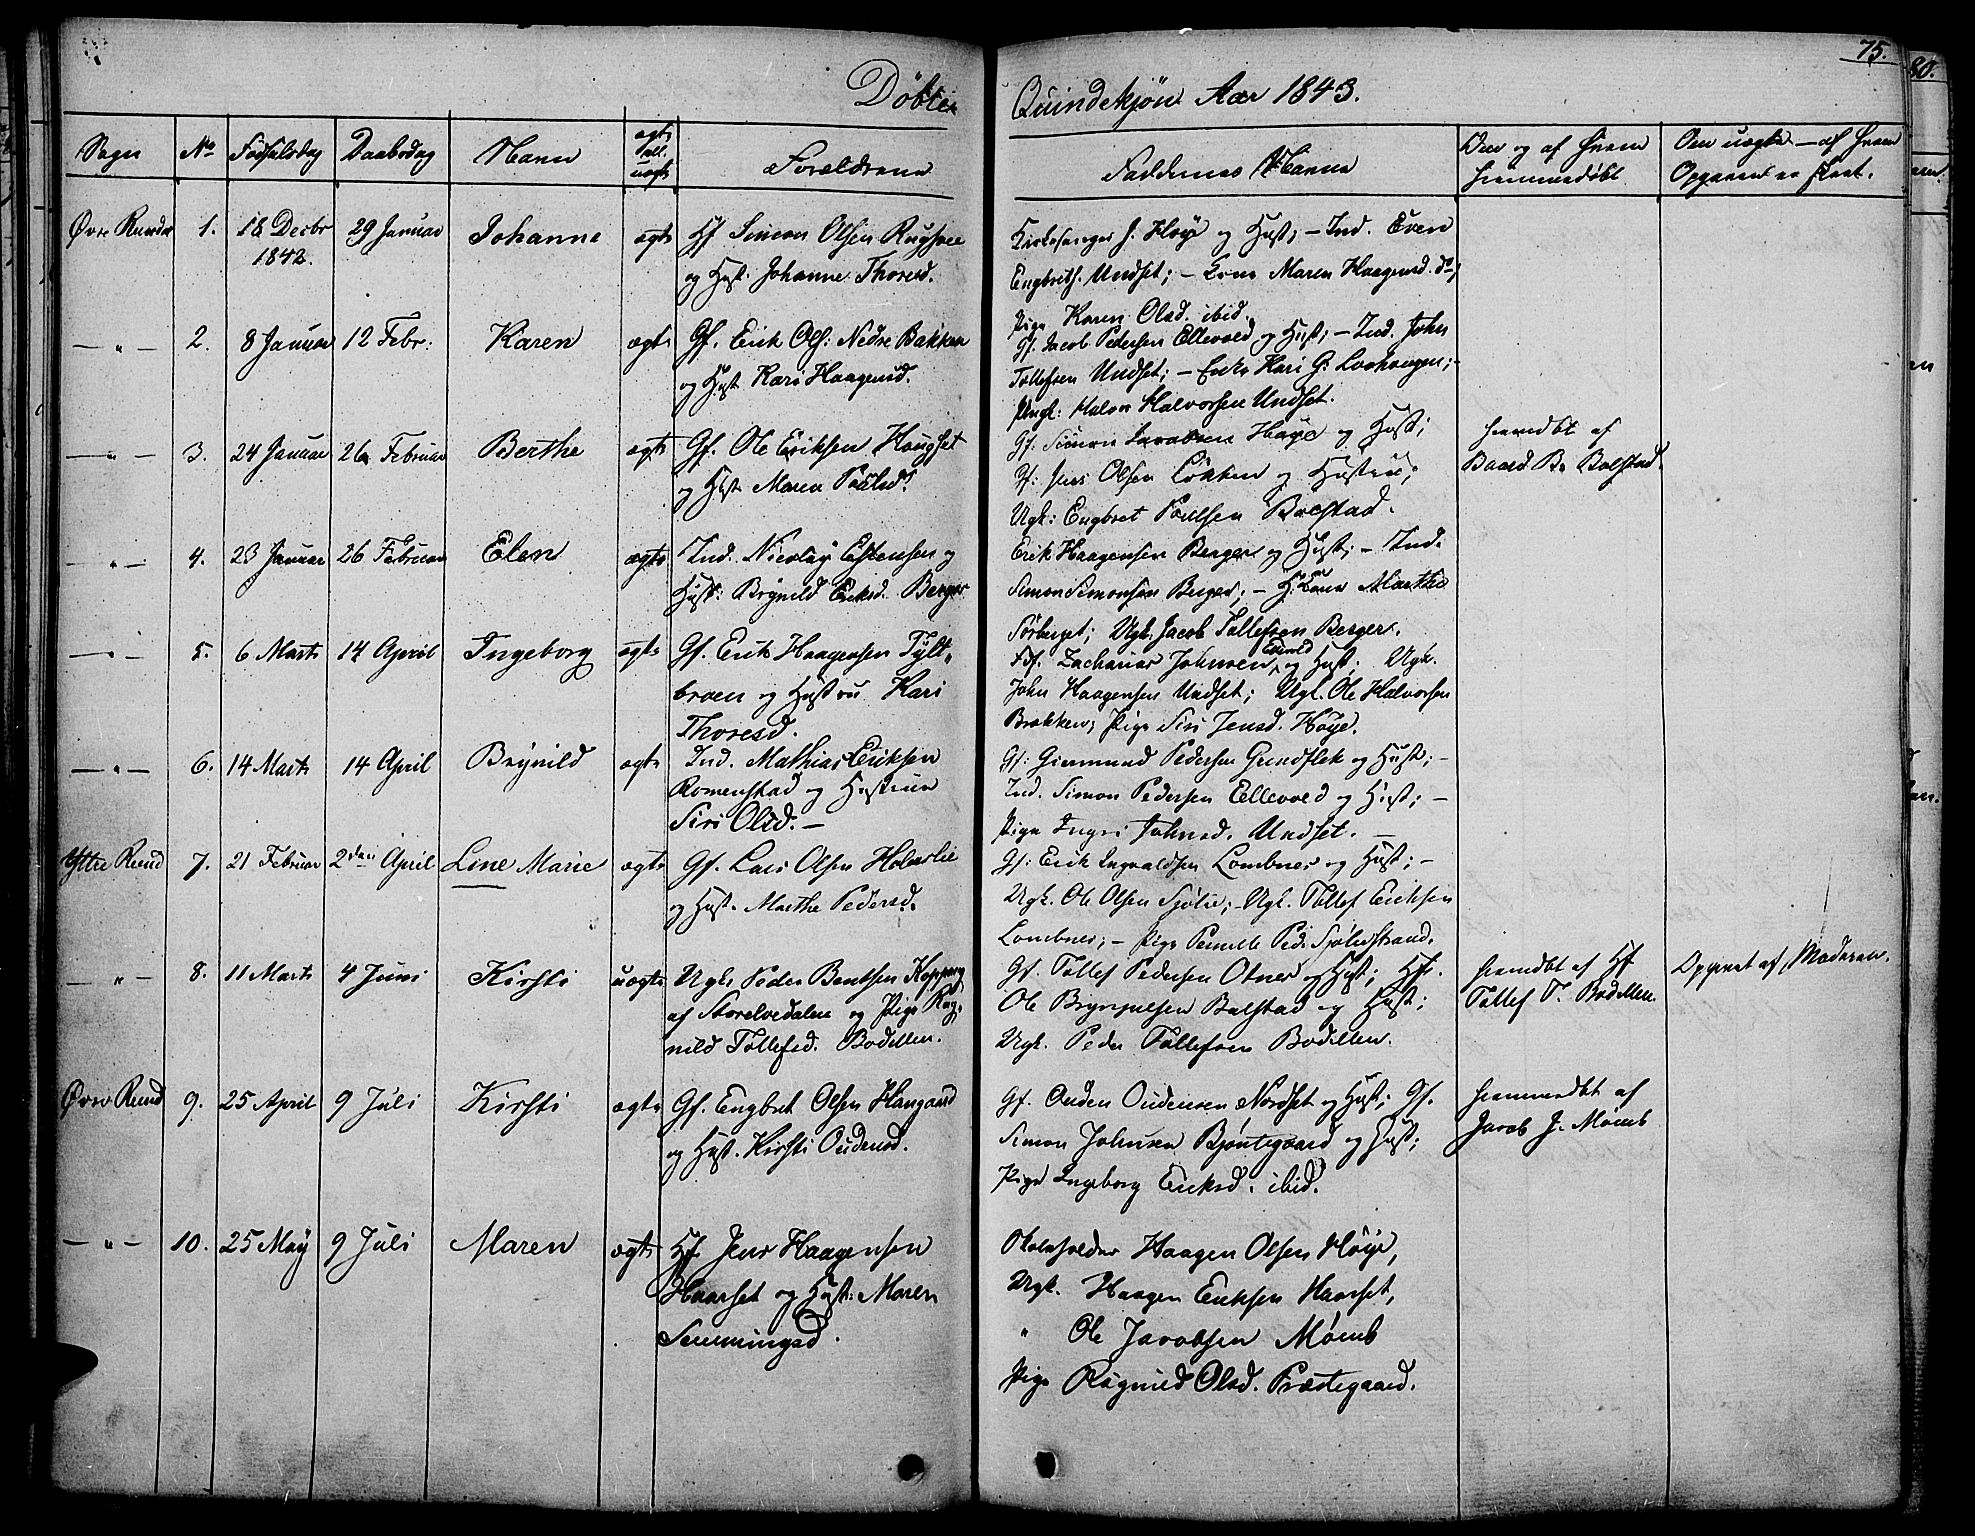 75.
80.
Døbte Quindekjøn Aar 1843.
Sogn No Födselsdag Daabsdag Navn ægte ell. uægte Forældrene Faddernes Navne Om og af hvem hjemmedøbt Om uægte — af hvem Opgaven er skeet.
Øvre Rendal 1. 18 Decbr 1842. 29 Januar Johanne ægte Hf Simon Olsen
og Hust. Johanne Thoresd.
Kirkesanger J. Höye og Hust; — Ind. Even
Engbreths. Undset; — Kone Maren Haagensd. do;
Pige Karen Olsd. ibid.
— " — 2. 8 Januar 12 Febr: Karen ægte Gf. Erik Ols: Nedre Bakken
og Hust Kari Haagensd.
Gf: Jacob Pedersen Ellevold og Hust; — Ind. John
Tollefsen Undset; — Enke Kari G. Lovhaugen; —
Ungk: Halvor Halvorsen Undset.
— " — 3. 24 Januar 26 Februar Berthe ægte Gf. Ole Eriksen Haugset
og Hust Maren Poulsd.
Gf: Simen Jacobsen Høye og Hust;
Gf: Jens Olsen Løkken og Hustru;
Ugk: Engbret Poulsen Bolstad.
hjemdbt af
Baard B. Bolstad.
— " — 4. 23 Januar 26 Februar Elen ægte Ind. Nicolay Estensen og
Hust: Brynild Eriksd. Berger
Erik Haagensen Berger og Hust; — Ind.
Simon Simonsen Berger; — G. Kone Marthe
Sørberget; Ugk. Jacob Tollefsen Berger.
— " — 5. 6 Marts 14 April Ingeborg ægte Gf. Erik Haagensen Tylt-
broen og Hustru Kari
Thoresd.
Zacharias Johnsen og Hust; Ugk.
John Haagensen Undset; Ugk. Ole Halvorsen
Brækken; Pige Siri Jensd. Høye.
— " — 6. 14 Marts 14 April Brynild ægte Ind. Mathias Eriksen
Romenstad og Hustrue
Siri Olsd. —
Gf: Giermund Pedersen Grindflek og Hust; —
Ind. Simon Pedersen Ellevold og Hust; —
Pige Ingri Johnsd. Undset. —
Yttre Rend 7. 21 Februar 2den April Line Marie ægte Gf. Lars Olsen Holmlie
og Hust. Marthe Pedersd.
Gf: Erik Ingvaldsen Lombnes og Hust; —
Ugk. Ole Olsen Sjølie; Ugk. Tollef Eriksen
Lombnes; — Pige Pernille Ped: Sjølistrand.
— " — 8. 11 Marts 4 Juni Kirsti uægte Ugk Peder Bentsen Koppang
af Storelvedalen og Pige Rag-
nild Tollefsd. Bodillen.
Gf. Tollef Pedersen Otnes og Hust; Hf.
Ole Brynjulsen Bolstad og Hust;
Ugk. Peder Tollefsen Bodillen.
hjemdbt af Hf
Tollef T. Bodillen.
Opgivet af Moderen.
Øvre Rend 9. 25 April 9 Juli Kirsti ægte Gf. Engbret Olsen Hangaard
og Hust. Kirsti Oudensd.
Gf. Ouden Oudensen Nordset og Hust; Gf.
Simon Johnsen Bjøntegaard og Hust;
Pige Ingeborg Eriksd. ibid.
hjemmedbt af
Jacob J. Momb
— " — 10. 25 May 9 Juli Maren ægte Hf Jens Haagensen
Haarset og Hust: Maren
Semmingsd.
Skoleholder Haagen Olsen Høye,
Ugk. Haagen Eriksen Haarset,
" Ole Jacobsen Momb
Pige Ragnild Olsd. Præstegaard.